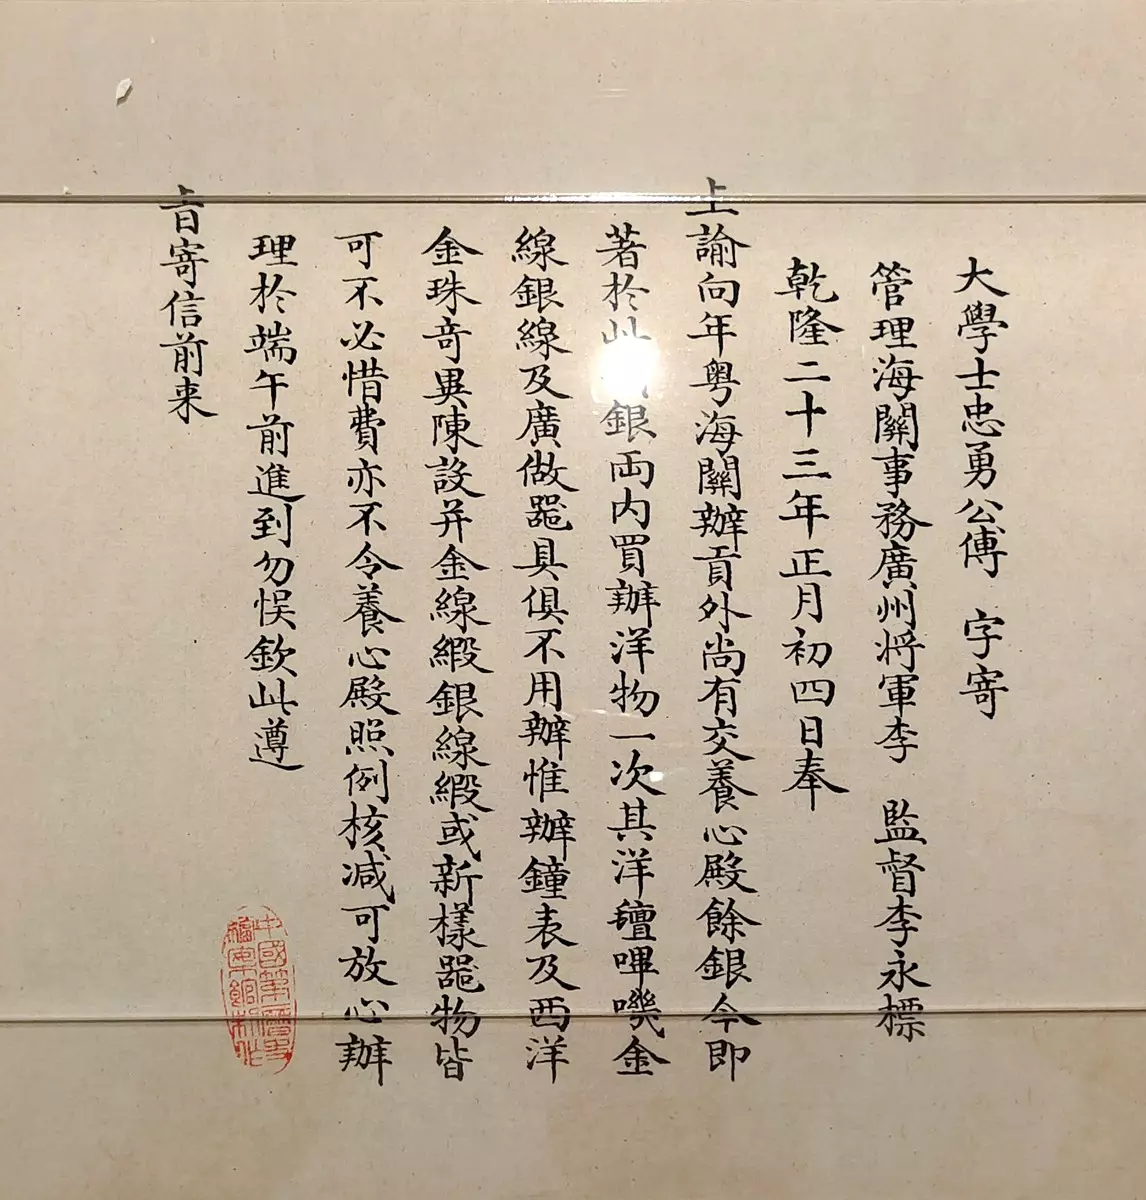 大學士忠勇公傅 字寄
管理海關事務廣州将軍李 監督李永標
乾隆二十三年正月初四日奉
上諭向年粤海關辦貢外尚有交養心殿餘銀今即
著於此銀両内買辦洋物一次其洋氊嗶嘰金
線銀線及廣做噐具俱不用辦惟辦鐘表及西洋
金珠竒異陳設并金線緞銀線緞或新樣噐物皆
可不必惜費亦不令養心殿照例核减可放心辦
理於端午前進到勿悮欽此遵
㫖寄信前来
中國第一歷史
檔案館制作